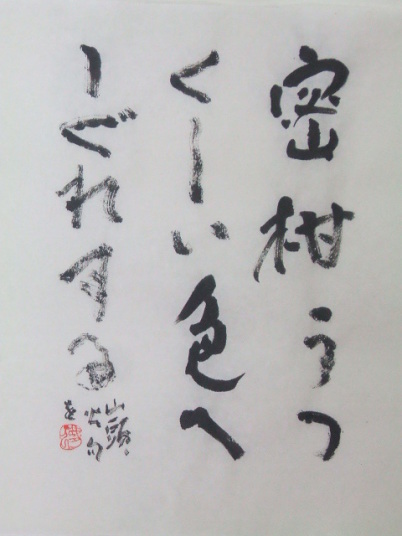 密柑うつ
くしい色へ
しぐれする
山頭
火句